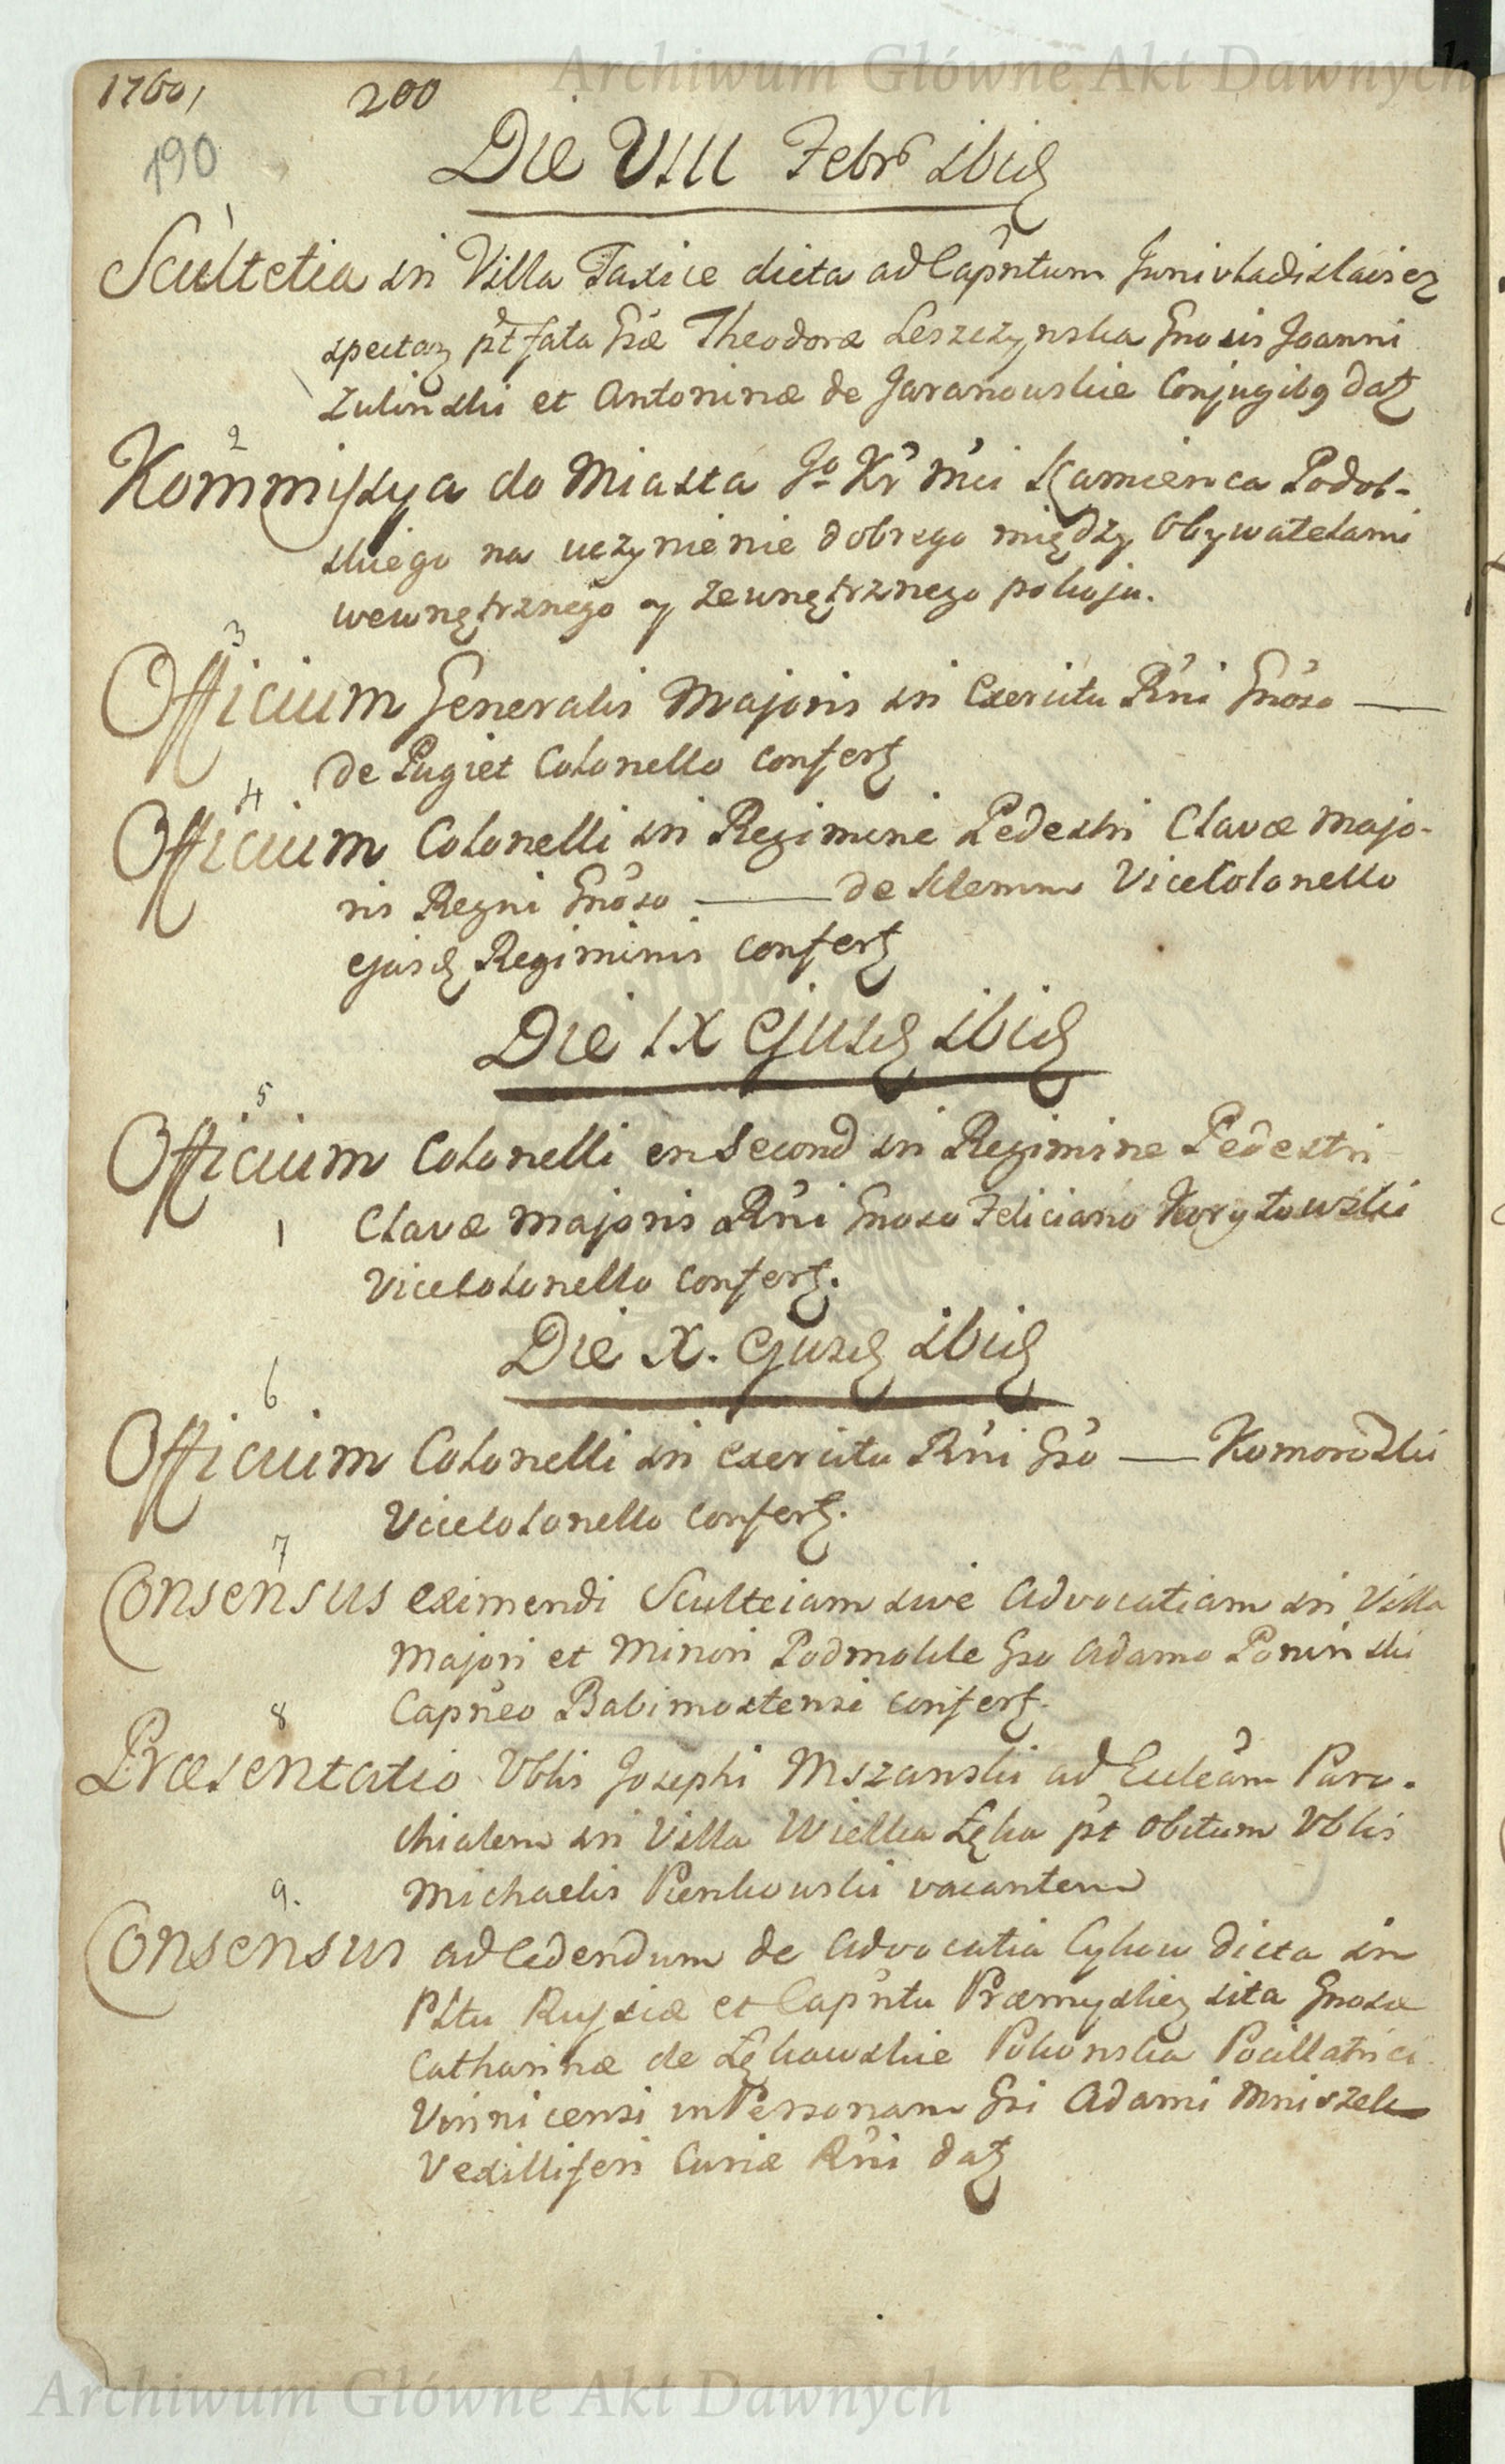 Archiwum Główne Akt Dawnych
1760,
200
190
Die VIII Febr. ibid
1
Scultetia in Villa Taxice dicta ad Capntum Junivladislavien
spectan pt fata Gsae Theodorae Leszczynska Gnosis Joanni
Zulinski et Antoninae de Jaranowskie Conjugibg dat
2
Kommissya do Miasta Jo Kr Mci Kamienca Podol-
skiego na uczynienie dobrego między Obywatelami
wewnętrznego y zewnętrznego pokoju.
3
Officium Generalis Majoris in Exercitu Rni Gnoso —
de Pugiet Colonello confert
4
Officium Colonelli in Regimine Pedestri Clavae Majo-
ris Regni Gnoso — de Klemm ViceColonello
ejusd Regiminis confert
Die IX ejusd ibid
5
Officium Colonelli en Second in Regimine Pedestri
1
Clavae Majoris Rni Gnoso Feliciano Korytowski
Vicecolonello confert.
Die X. ejusd ibid
6
Officium Colonelli in exercitu Rni Gso — Komorowski
Vicecolonello confert.
7
Consensus eximendi Sculteciam sive Advocatiam in Villa
Majori et Minori Podmokle Gso Adamo Poninski
Capneo Babimostensi confert.
8
Praesentatio Vblis Josephi Mszanski ad Eccleam Paro-
chialem in Villa Wielka Łęka pt obitum Vblis
Michaelis Pienkowski vacantem
9.
Consensus ad Cedendum de Advocatia Cykow dicta in
Pltu Russiae et Capntu Praemyslien sita Gnosae
Catharinae de Łękawskie Pokonska Pocillatrici
Vinnicensi in Personam Gsi Adami Mniszek
Vexilliferi Curiae Rni dat
Archiwum Główne Akt Dawnych